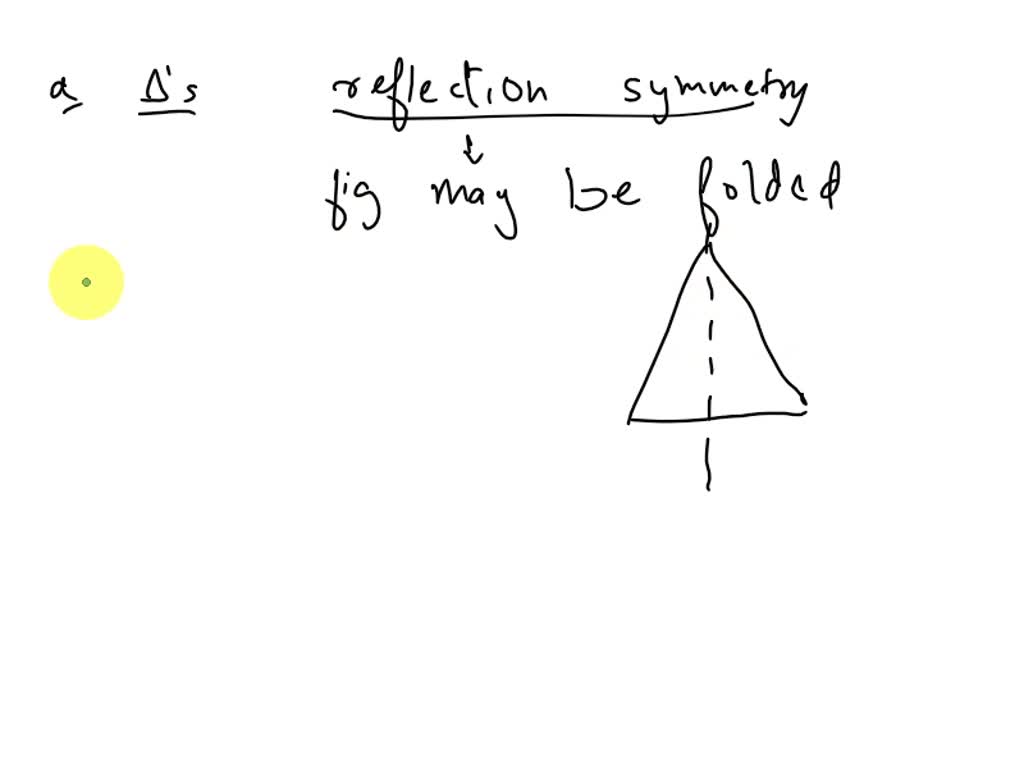 a Δ's reflection symmetry
fig may be folded